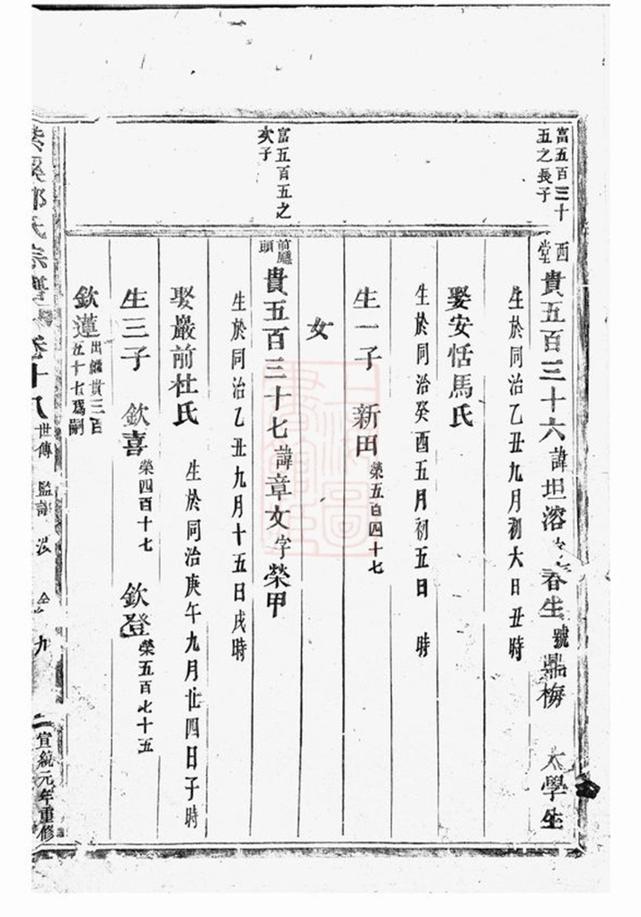 富五百三十
五之長子
西
堂
貴五百三十六諱坦溶 春生號鼎梅 太學生
生於同治乙丑九月初六日丑時
娶安恬馬氏
生於同治癸酉五月初五日 時
生一子 新田榮五百四十七
女
富五百五之
次子
前廳
頭
貴五百三十七諱章文字榮甲
生於同治乙丑九月十五日戌時
娶嚴前杜氏
生於同治庚午九月廿四日子時
生三子 欽喜榮四百十七 欽登榮五百七十五
欽蓮出繼貴三百
五十七爲嗣
氏宗譜 卷十八 世傳 九 二 宣統元年重修